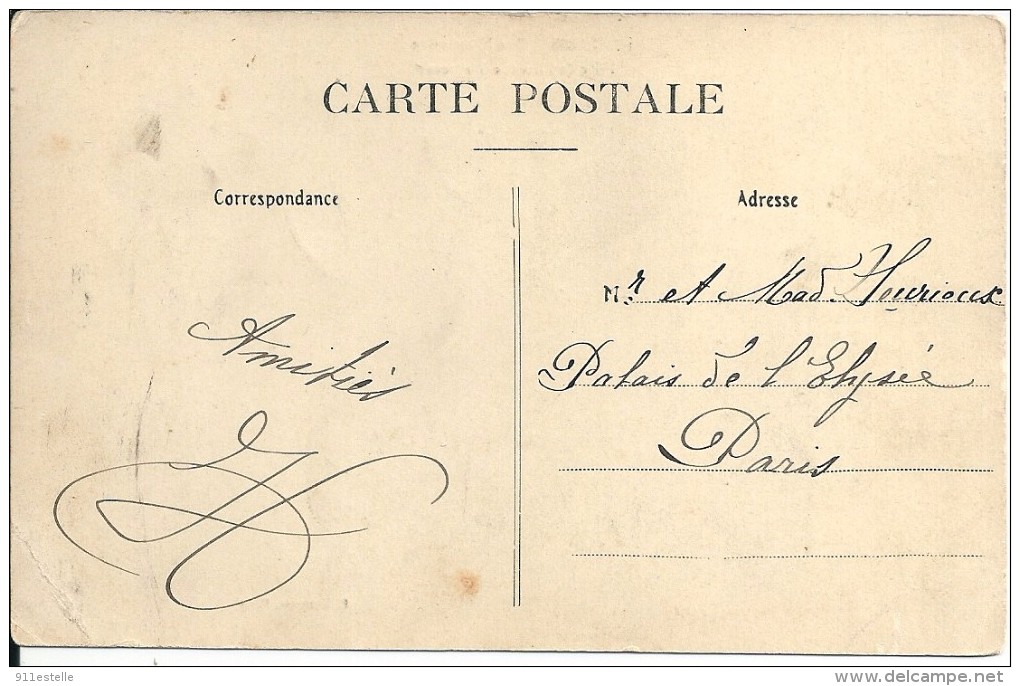 CARTE POSTALE
Correspondance
Amitiés
Adresse
Mr. et Mad. Heurioux
Palais de l'Elysée
Paris
911estelle
www.delcampe.net